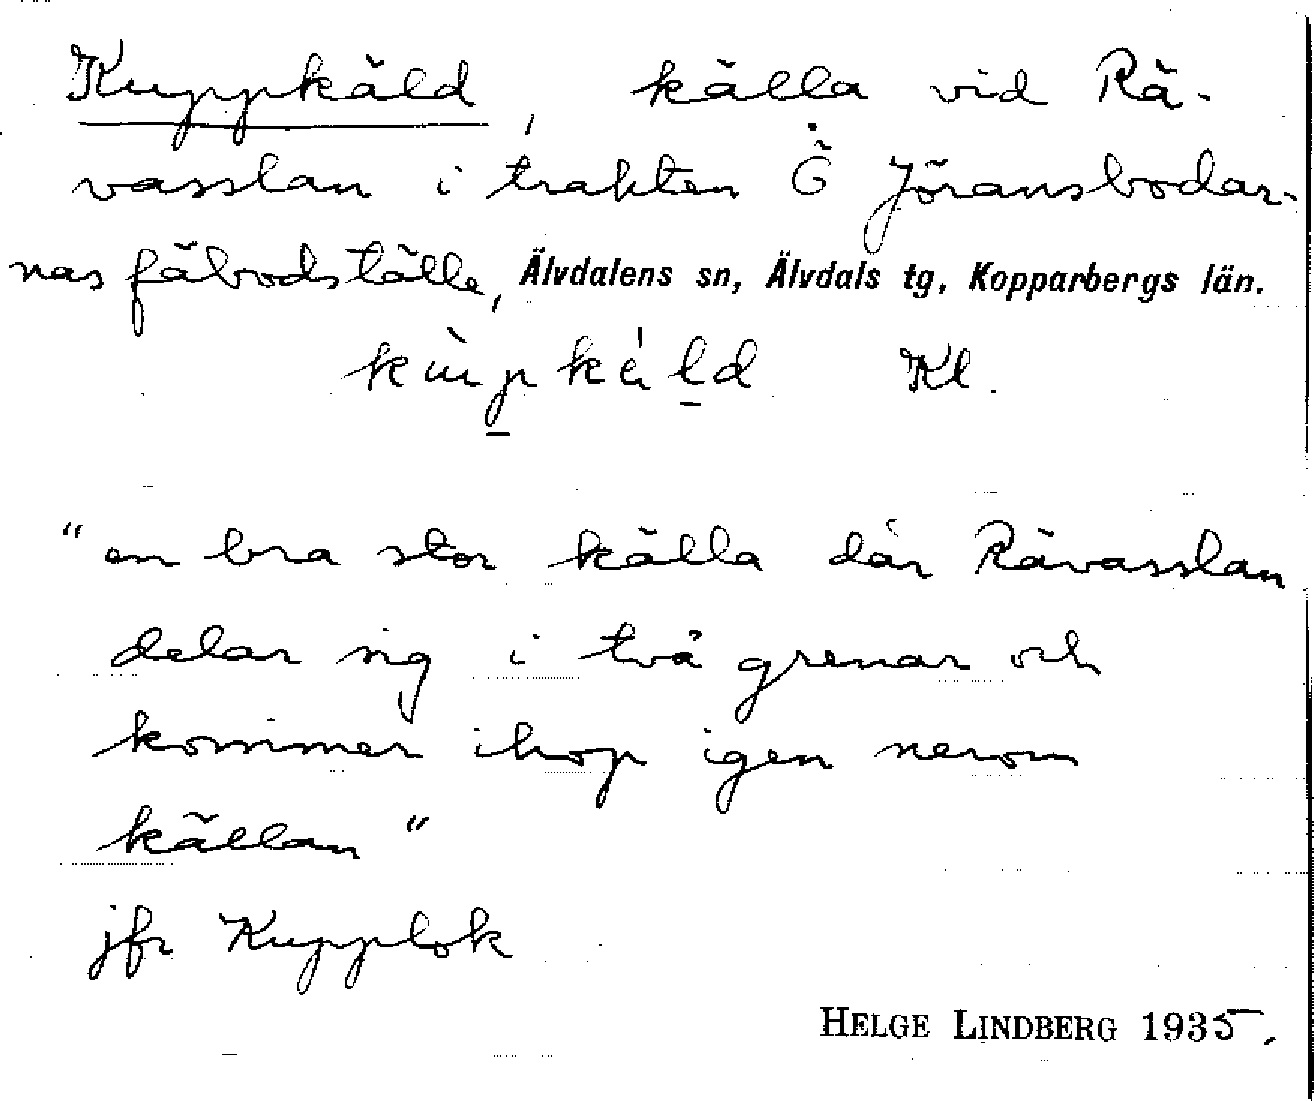 Kuppkäld, källa vid Rä-
vasslan i trakten Ö Jöransbodar-
nas fäbodställe, Älvdalens sn, Älvdals tg, Kopparbergs län.
Kl.
"en bra stor källa där Rävasslan
delar sig i två grenar och
kommer ihop igen nerom
källan"
jfr Kupplok
HELGE LINDBERG 1935.